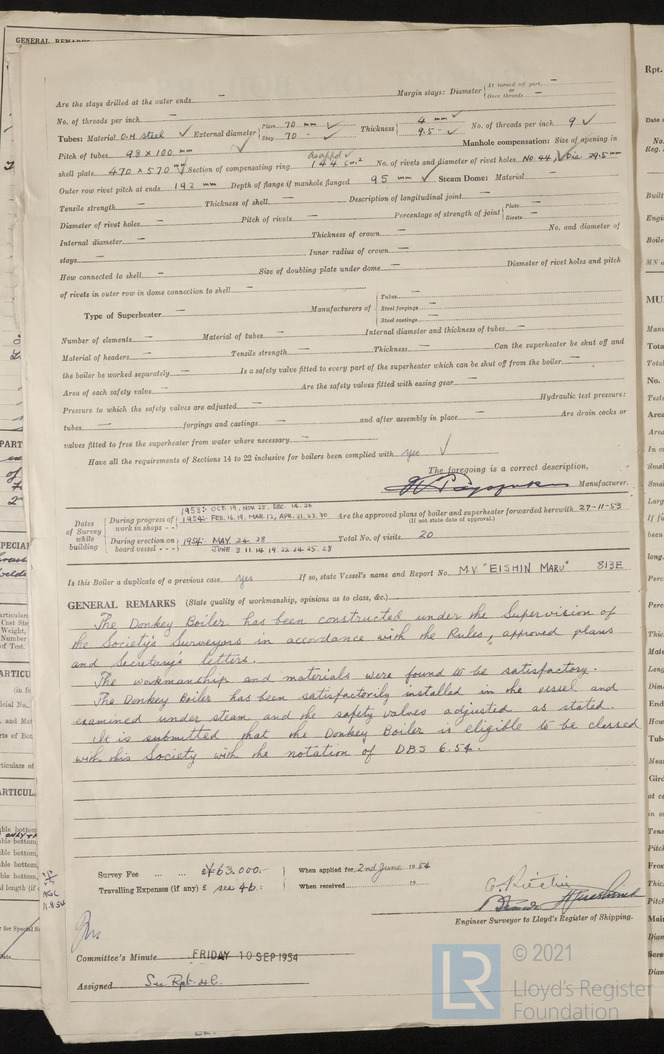 GENERAL REMARKS
Are the stays drilled at the outer ends — Margin stays: Diameter { At turned off part, — or Over threads —
No. of threads per inch —
Tubes: Material O.H steel ✓ External diameter { Plain 70 mm ✓ Stay 70 - ✓ Thickness { 4 mm ✓ 9.5 - ✓ No. of threads per inch 9 ✓
Pitch of tubes 98 x 100 mm ✓ Manhole compensation: Size of opening in
shell plate 470 x 570 mm ✓ Section of compensating ring 144 cm² No. of rivets and diameter of rivet holes No 44 ✓ Dia 29.5 mm
Outer row rivet pitch at ends 192 mm Depth of flange if manhole flanged 95 mm ✓ Steam Dome: Material —
Tensile strength — Thickness of shell — Description of longitudinal joint —
Diameter of rivet holes — Pitch of rivets — Percentage of strength of joint { Plate — Rivets —
Internal diameter — Thickness of crown — No. and diameter of
stays — Inner radius of crown —
How connected to shell — Size of doubling plate under dome — Diameter of rivet holes and pitch
of rivets in outer row in dome connection to shell —
Type of Superheater — Manufacturers of { Tubes — Steel forgings — Steel castings —
Number of elements — Material of tubes — Internal diameter and thickness of tubes —
Material of headers — Tensile strength — Thickness — Can the superheater be shut off and
the boiler be worked separately — Is a safety valve fitted to every part of the superheater which can be shut off from the boiler —
Area of each safety valve — Are the safety valves fitted with easing gear —
Pressure to which the safety valves are adjusted — Hydraulic test pressure:
tubes — forgings and castings — and after assembly in place — Are drain cocks or
valves fitted to free the superheater from water where necessary —
Have all the requirements of Sections 14 to 22 inclusive for boilers been complied with yes ✓
The foregoing is a correct description,
Manufacturer.
Dates of Survey while building
During progress of work in shops - - 1953: OCT. 19, NOV. 25, DEC. 14. 26 1954: FEB. 16.19, MAR. 12, APR. 21.23.30
Are the approved plans of boiler and superheater forwarded herewith 27-11-53
(If not state date of approval.)
During erection on board vessel - - - 1954: MAY 24. 28 JUNE 3. 11. 14. 19. 22. 24. 25. 28
Total No. of visits 20
Is this Boiler a duplicate of a previous case yes If so, state Vessel's name and Report No. M.V. "EISHIN MARU" 813E
GENERAL REMARKS (State quality of workmanship, opinions as to class, &c.)
The Donkey Boiler has been constructed under the Supervision of
the Society's Surveyors in accordance with the Rules, approved plans
and Secretary's letters.
The workmanship and materials were found to be satisfactory.
The Donkey Boiler has been satisfactorily installed in the vessel and
examined under steam and the safety valves adjusted as stated.
It is submitted that the Donkey Boiler is eligible to be classed
with this Society with the notation of DBS 6.54.
Survey Fee ... ... ¥63.000.- When applied for 2nd June 1954
Travelling Expenses (if any) £ see 4b. When received 19
Engineer Surveyor to Lloyd's Register of Shipping.
Committee's Minute FRIDAY 10 SEP 1954
Assigned See Rpt.
LR
© 2021
Lloyd's Register
Foundation